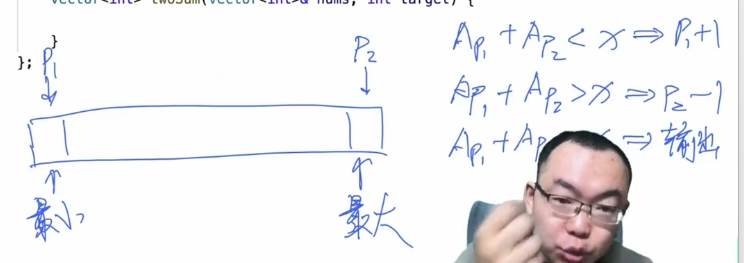 vector<int> twoSum(vector<int>& nums, int target) {
}
};
P₁
P₂
最小
最大
A_P₁ + A_P₂ < x ⇒ P₁+1
A_P₁ + A_P₂ > x ⇒ P₂-1
A_P₁ + A_P ⇒ 输出